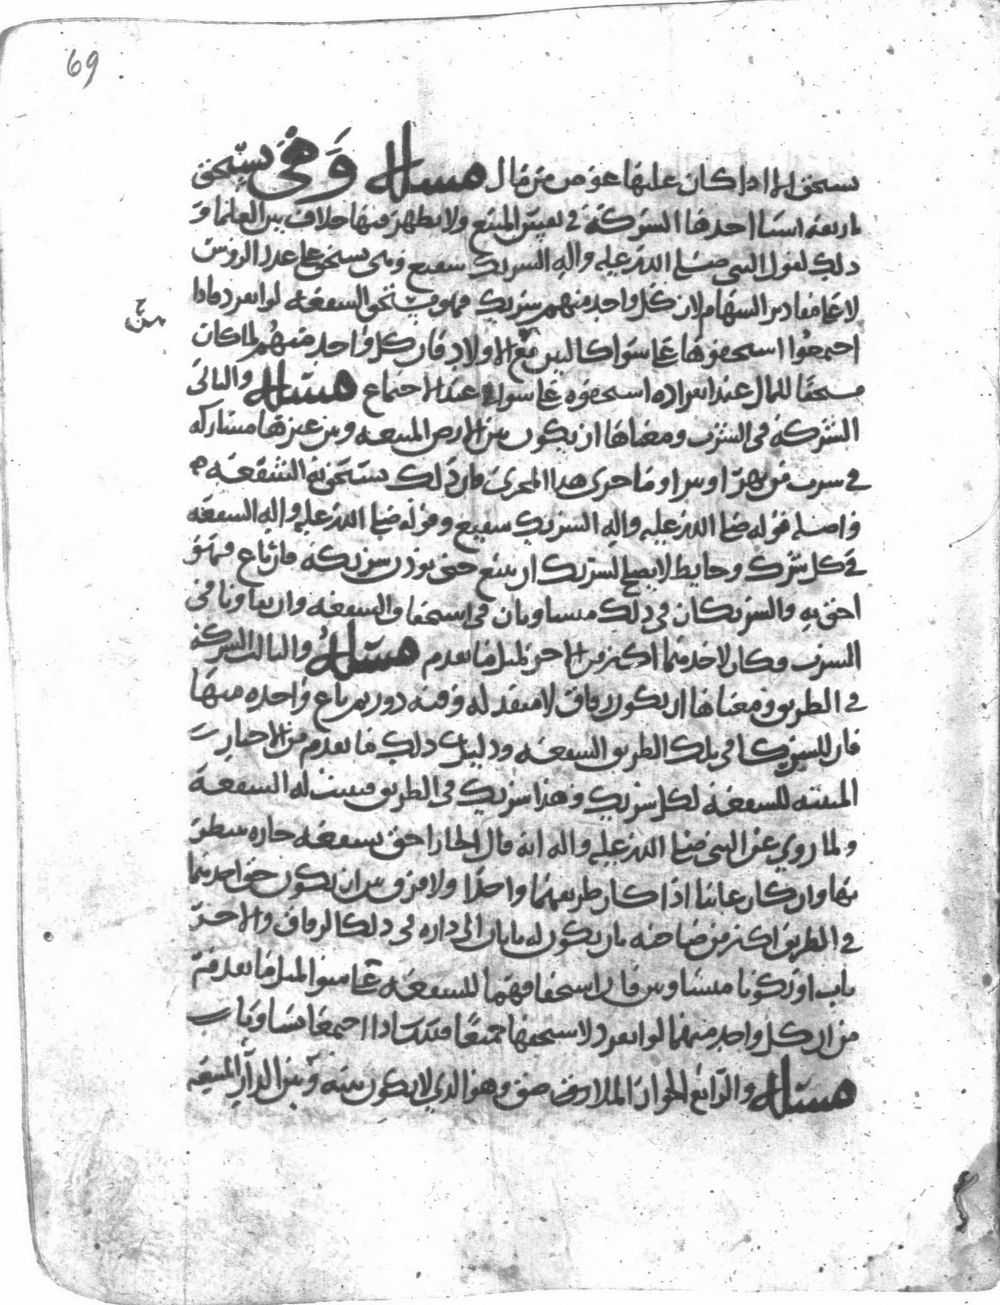 69
يستحق الا اذا كان عليها عوض من مال مسئله وهي تستحق
باربعه اشيا احدها الشركة في نفس المبيع ولا يظهر فيها خلاف بين العلما و
ذلك لقول النبي صلى الله عليه واله الشريك شفيع وهي تستحق على عدد الروس
لا على مقادير السهام لان كل واحد منهم شريك فهو يستحق الشفعه لو انفرد فاذا
اجتمعوا استحقوها على سوا كالبنين مع الاولاد فان كل واحد منهم لما كان
مستحقا للمال عند انفراده استحقوه على سوا في عند الاجتماع مسئله والثاني
الشركه في الشرب ومعناها ان يكون بين الارض المبيعه وبين غيرها مشاركه
في شرب من نهر او بير او ما جرى هذا المجرى فان ذلك يستحق به الشفعه
واصله قوله صلى الله عليه واله الشريك شفيع وقوله صلى الله عليه واله الشفعه
في كل شرك وحايط لا يصلح لشريك ان يبيع حتى يوذن شريكه فان باع فهو
احق به والشريكان في ذلك متساويان في استحقاق الشفعه وان تفاوتا في
الشرب وكان لاحدهما اكثر من الاخر لمثل ما تقدم مسئله والثالث الشركه
في الطريق ومعناها ان يكون زقاق لا منفذ له وفيه دور ثم باع واحده منها
فان للشركا في تلك الطريق الشفعه ودليل ذلك ما تقدم من الاخبار
المبينه للشفعه لكل شريك وهذا شريك في الطريق فثبت له الشفعة
ولما روي عن النبي صلى الله عليه واله انه قال الجار احق بشفعه جاره ينتظر
بها وان كان غايبا اذا كان طريقهما واحدا ولا فرق بين ان يكون حق احدهما
في الطريق اكثر من صاحبه بان يكون له بابان الى داره في ذلك الزقاق والاخر
باب او يكونا متساويين فان استحقاقهما للشفعه على سوا لمثل ما تقدم
من ان كل واحد منهما لو انفرد لاستحقها جميعا فكذلك اذا اجتمعا تساويا
مسئله والرابع الجوار الملاصق وهو الذي لا يكون بينه وبين الدار المبيعه